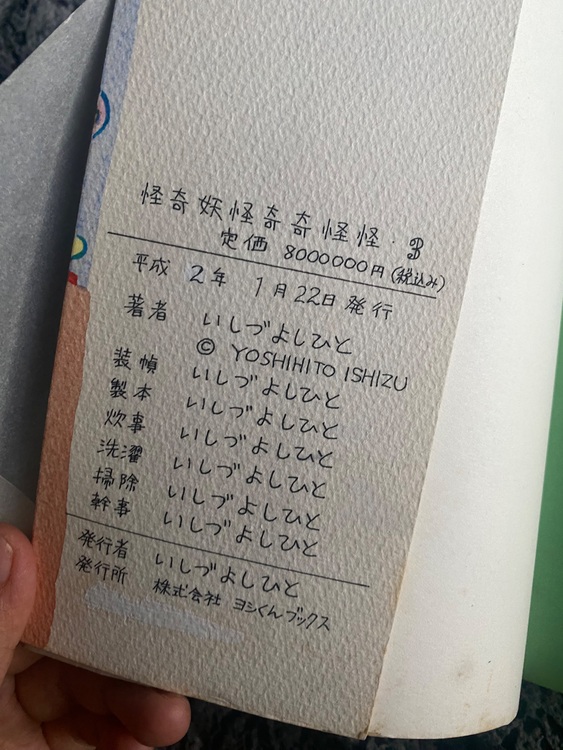 怪奇妖怪奇奇怪怪・3
定価 8000000円(税込み)
平成 2年 1月22日 発行
著者 いしづよしひと
© YOSHIHITO ISHIZU
装幀 いしづよしひと
製本 いしづよしひと
炊事 いしづよしひと
洗濯 いしづよしひと
掃除 いしづよしひと
幹事 いしづよしひと
発行者 いしづよしひと
発行所 株式会社 ヨシくんブックス